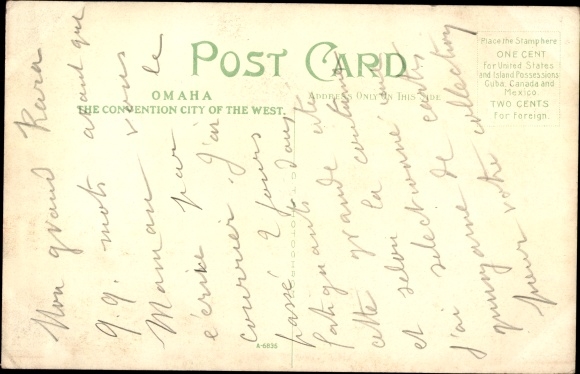 POST CARD
OMAHA
THE CONVENTION CITY OF THE WEST.
ADDRESS ONLY ON THIS SIDE
Place the Stamp here
ONE CENT
for United States
and Island Possessions
Cuba, Canada and
Mexico.
TWO CENTS
for Foreign.
A-6835
Mon grand Kara
qq. mots avant que
Maman vous
écrive par le
courrier. J'ai
passé 2 jours
fatiguants dans cette
grande
et selon la
j'ai selectionné
quinzaine de cartes
pour votre collection